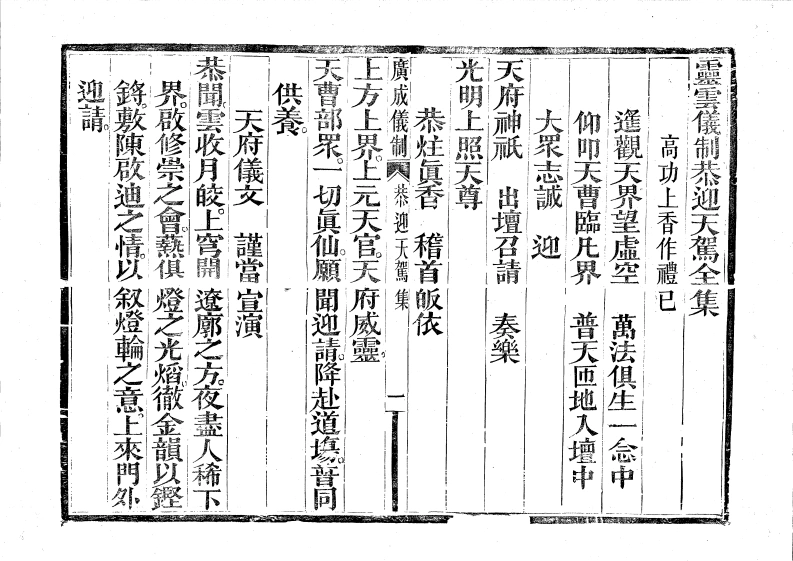 靈雲儀制恭迎天駕全集
高功上香作禮已
遙觀天界望虛空　萬法俱生一念中
仰叩天曹臨凡界　普天匝地入壇中
大眾志誠　迎
天府神祇　出壇召請　奏樂
光明上照天尊
恭炷眞香　稽首皈依
廣成儀制　恭迎天駕集　一
上方上界。上元天官。天府威靈。
天曹部眾。一切眞仙。願聞迎請。降赴道塲。普同
供養。
天府儀文　謹當宣演
恭聞。雲收月皎。上穹開遼廓之方。夜盡人稀。下
界啟修崇之會。爇俱燈之光熖。徹金韻以鏗
鏘。敷陳啟迪之情。以叙燈輪之意。上來門外
迎請。